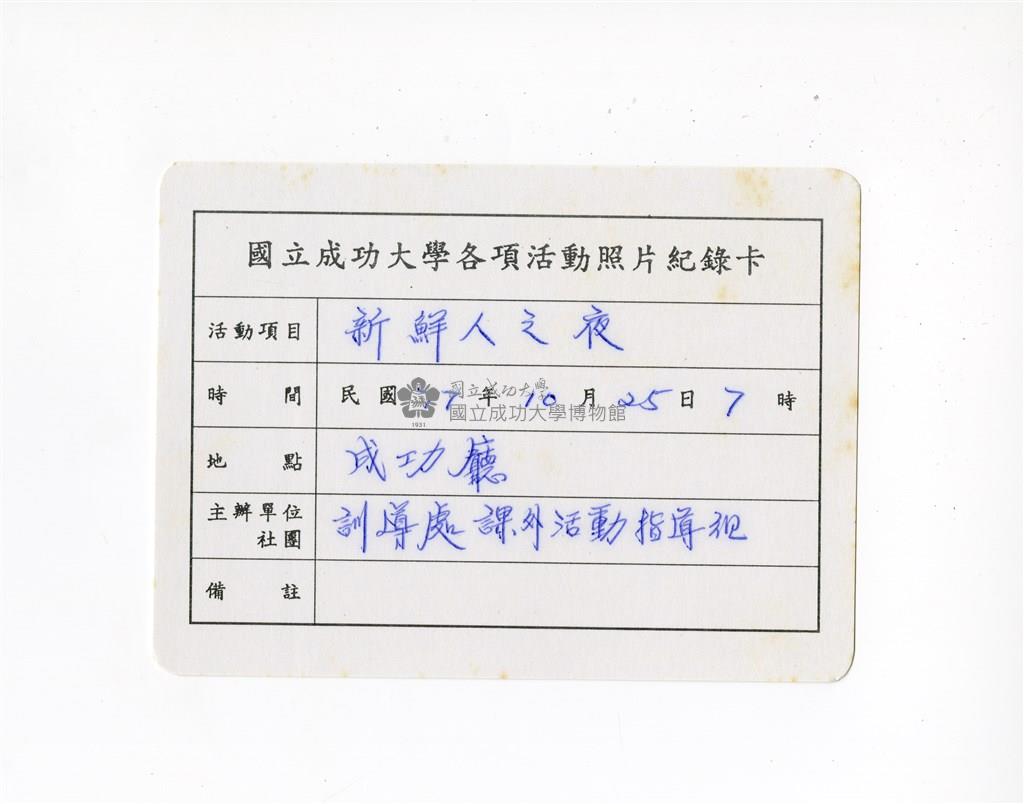 國立成功大學各項活動照片紀錄卡
活動項目 新鮮人之夜
時間 民國 7年10月25日7時
國立成功大學
國立成功大學博物館
1931
地點 成功廳
主辦單位社團 訓導處課外活動指導組
備註